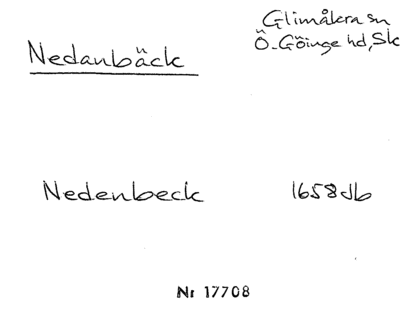 Glimåkra sn
Nedanbäck
Ö. Göinge hd, Sk
Nedenbeck 1658 Jb
Nr 17708